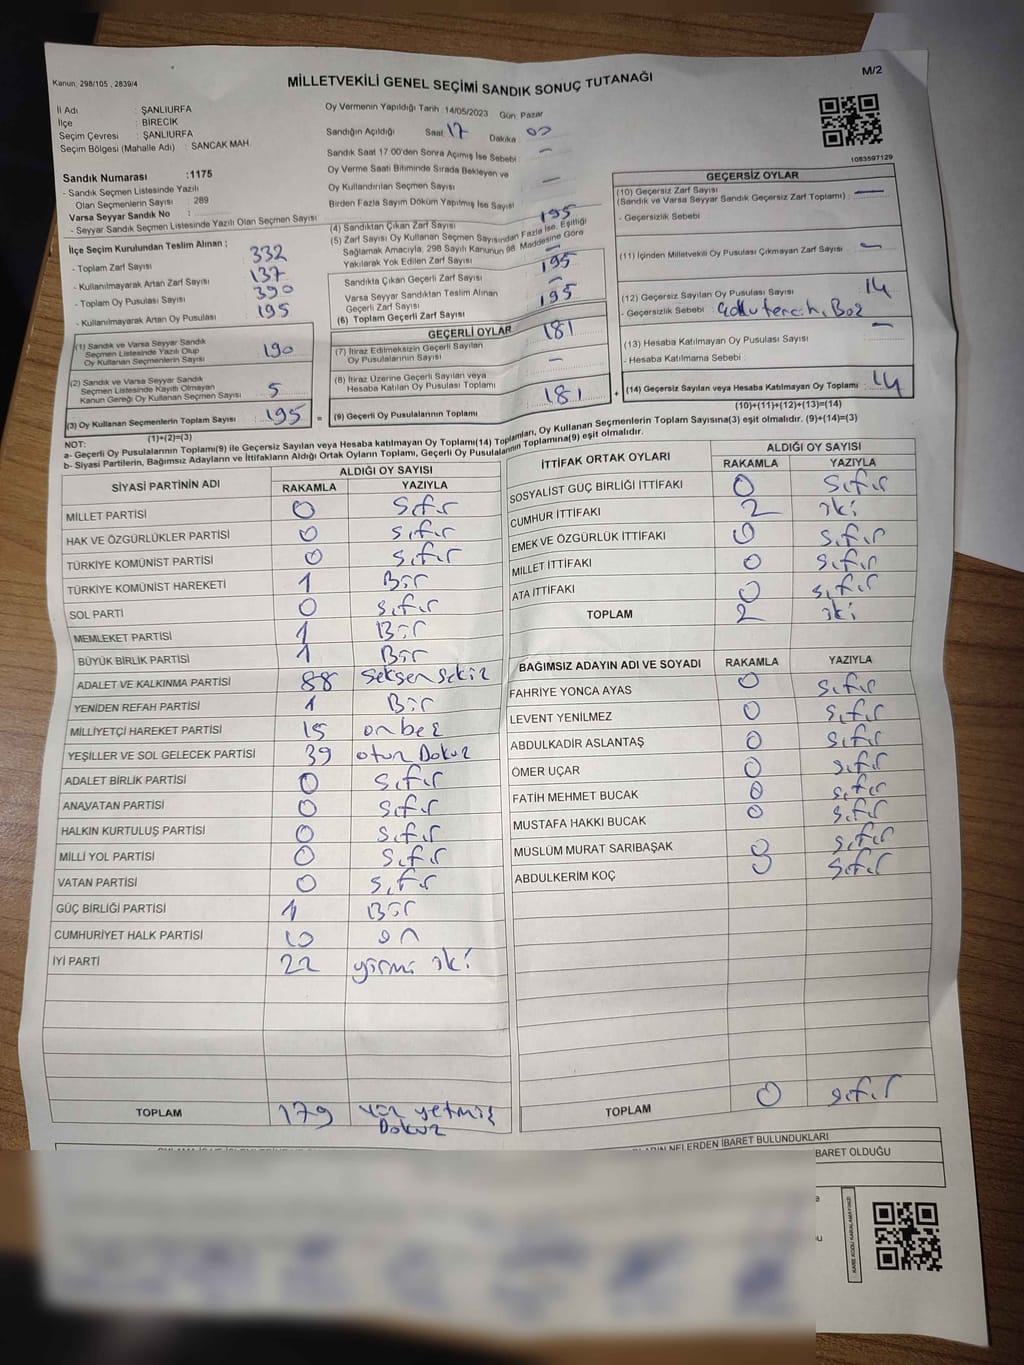 Kanun: 298/105 , 2839/4
MİLLETVEKİLİ GENEL SEÇİMİ SANDIK SONUÇ TUTANAĞI
M/2
İl Adı : ŞANLIURFA
İlçe : BİRECİK
Seçim Çevresi : ŞANLIURFA
Seçim Bölgesi (Mahalle Adı) : SANCAK MAH.
Sandık Numarası :1175
- Sandık Seçmen Listesinde Yazılı
Olan Seçmenlerin Sayısı : 289
Varsa Seyyar Sandık No :
- Seyyar Sandık Seçmen Listesinde Yazılı Olan Seçmen Sayısı :
Oy Vermenin Yapıldığı Tarih :14/05/2023 Gün: Pazar
Sandığın Açıldığı Saat: 17 Dakika: 00
Sandık Saat 17:00'den Sonra Açımış İse Sebebi : -
Oy Verme Saati Bitiminde Sırada Bekleyen ve
Oy Kullandırılan Seçmen Sayısı : -
Birden Fazla Sayım Döküm Yapılmış İse Sayısı :
1083597129
İlçe Seçim Kurulundan Teslim Alınan ;
- Toplam Zarf Sayısı : 332
- Kullanılmayarak Artan Zarf Sayısı : 137
- Toplam Oy Pusulası Sayısı : 390
- Kullanılmayarak Artan Oy Pusulası : 195
(1) Sandık ve Varsa Seyyar Sandık
Seçmen Listesinde Yazılı Olup
Oy Kullanan Seçmenlerin Sayısı : 190
(2) Sandık ve Varsa Seyyar Sandık
Seçmen Listesinde Kayıtlı Olmayan
Kanun Gereği Oy Kullanan Seçmen Sayısı : 5
(3) Oy Kullanan Seçmenlerin Toplam Sayısı : 195 =
(1)+(2)=(3)
(4) Sandıktan Çıkan Zarf Sayısı : 195
(5) Zarf Sayısı Oy Kullanan Seçmen Sayısından Fazla İse, Eşitliği
Sağlamak Amacıyla, 298 Sayılı Kanunun 98. Maddesine Göre
Yakılarak Yok Edilen Zarf Sayısı : -
Sandıkta Çıkan Geçerli Zarf Sayısı : 195
Varsa Seyyar Sandıktan Teslim Alınan
Geçerli Zarf Sayısı : -
(6) Toplam Geçerli Zarf Sayısı : 195
GEÇERLİ OYLAR
(7) İtiraz Edilmeksizin Geçerli Sayılan
Oy Pusulalarının Sayısı : 181
(8) İtiraz Üzerine Geçerli Sayılan veya
Hesaba Katılan Oy Pusulası Toplamı : -
(9) Geçerli Oy Pusulalarının Toplamı : 181 +
GEÇERSİZ OYLAR
(10) Geçersiz Zarf Sayısı
(Sandık ve Varsa Seyyar Sandık Geçersiz Zarf Toplamı) : -
- Geçersizlik Sebebi :
(11) İçinden Milletvekili Oy Pusulası Çıkmayan Zarf Sayısı : -
(12) Geçersiz Sayılan Oy Pusulası Sayısı : 14
- Geçersizlik Sebebi :
(13) Hesaba Katılmayan Oy Pusulası Sayısı : -
- Hesaba Katılmama Sebebi :
(14) Geçersiz Sayılan veya Hesaba Katılmayan Oy Toplamı : 14
(10)+(11)+(12)+(13)=(14)
NOT:
a- Geçerli Oy Pusulalarının Toplamı(9) ile Geçersiz Sayılan veya Hesaba katılmayan Oy Toplamı(14) Toplamları, Oy Kullanan Seçmenlerin Toplam Sayısına(3) eşit olmalıdır. (9)+(14)=(3)
b- Siyasi Partilerin, Bağımsız Adayların ve İttifakların Aldığı Ortak Oyların Toplamı, Geçerli Oy Pusulalarının Toplamına(9) eşit olmalıdır.
SİYASİ PARTİNİN ADI ALDIĞI OY SAYISI
RAKAMLA YAZIYLA
MİLLET PARTİSİ 0 Sıfır
HAK VE ÖZGÜRLÜKLER PARTİSİ 0 Sıfır
TÜRKİYE KOMÜNİST PARTİSİ 0 Sıfır
TÜRKİYE KOMÜNİST HAREKETİ 1 Bir
SOL PARTİ 0 Sıfır
MEMLEKET PARTİSİ 1 Bir
BÜYÜK BİRLİK PARTİSİ 1 Bir
ADALET VE KALKINMA PARTİSİ 88 Seksen Sekiz
YENİDEN REFAH PARTİSİ 1 Bir
MİLLİYETÇİ HAREKET PARTİSİ 15 on beş
YEŞİLLER VE SOL GELECEK PARTİSİ 39 otuz Dokuz
ADALET BİRLİK PARTİSİ 0 Sıfır
ANAVATAN PARTİSİ 0 Sıfır
HALKIN KURTULUŞ PARTİSİ 0 Sıfır
MİLLİ YOL PARTİSİ 0 Sıfır
VATAN PARTİSİ 0 Sıfır
GÜÇ BİRLİĞİ PARTİSİ 1 Bir
CUMHURİYET HALK PARTİSİ 10 on
İYİ PARTİ 22 yirmi iki
TOPLAM 179 yüz yetmiş
Dokuz
İTTİFAK ORTAK OYLARI ALDIĞI OY SAYISI
RAKAMLA YAZIYLA
SOSYALİST GÜÇ BİRLİĞİ İTTİFAKI 0 Sıfır
CUMHUR İTTİFAKI 2 iki
EMEK VE ÖZGÜRLÜK İTTİFAKI 0 Sıfır
MİLLET İTTİFAKI 0 Sıfır
ATA İTTİFAKI 0 Sıfır
TOPLAM 2 iki
BAĞIMSIZ ADAYIN ADI VE SOYADI RAKAMLA YAZIYLA
FAHRİYE YONCA AYAS 0 Sıfır
LEVENT YENİLMEZ 0 Sıfır
ABDULKADİR ASLANTAŞ 0 Sıfır
ÖMER UÇAR 0 Sıfır
FATİH MEHMET BUCAK 0 Sıfır
MUSTAFA HAKKI BUCAK 0 Sıfır
MÜSLÜM MURAT SARIBAŞAK 0 Sıfır
ABDULKERİM KOÇ 0 Sıfır
TOPLAM 0 Sıfır
NELERDEN İBARET BULUNDUKLARI
BARET OLDUĞU
KARE KODU KARALAMAYINIZ!